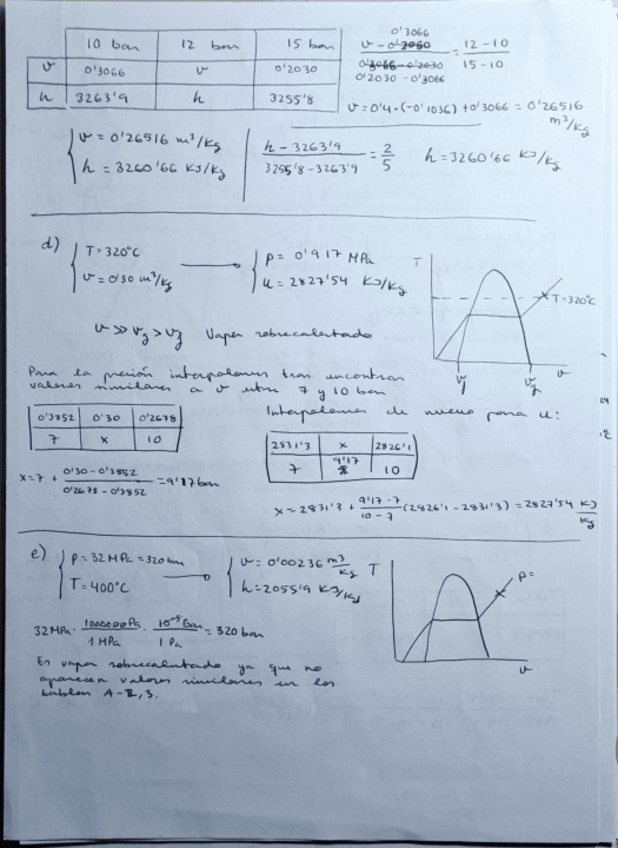 10 bar 12 bar 15 bar
v 0'3066 v 0'2030
h 3263'9 h 3255'8
0'3066
v - 0'2030 / 0'3066 - 0'2030 = 12 - 10 / 15 - 10
0'2030 - 0'3066
v = 0'4 · (-0'1036) + 0'3066 = 0'26516 m³/kg
v = 0'26516 m³/kg
h = 3260'66 KJ/kg
h - 3263'9 / 3255'8 - 3263'9 = 2/5 h = 3260'66 KJ/kg
d) T = 320°C → P = 0'917 MPa
v = 0'30 m³/kg u = 2827'54 KJ/kg
T
T = 320°C
vf vg v
v >> vg > vf Vapor sobrecalentado
Para la presión interpolamos tras encontrar
valores similares a v entre 7 y 10 bar
0'3852 0'30 0'2678
7 x 10
x = 7 + 0'30 - 0'3852 / 0'2678 - 0'3852 = 9'17 bar
Interpolamos de nuevo para u:
2831'3 x 2826'1
7 9'17 10
x = 2831'3 + 9'17 - 7 / 10 - 7 (2826'1 - 2831'3) = 2827'54 KJ/kg
e) P = 32 MPa = 320 bar → v = 0'00236 m³/kg
T = 400°C h = 2055'9 KJ/kg
T
P =
v
32 MPa · 1000000 Pa / 1 MPa · 10⁻⁵ bar / 1 Pa = 320 bar
Es vapor sobrecalentado ya que no
aparecen valores similares en las
tablas A-2,3.